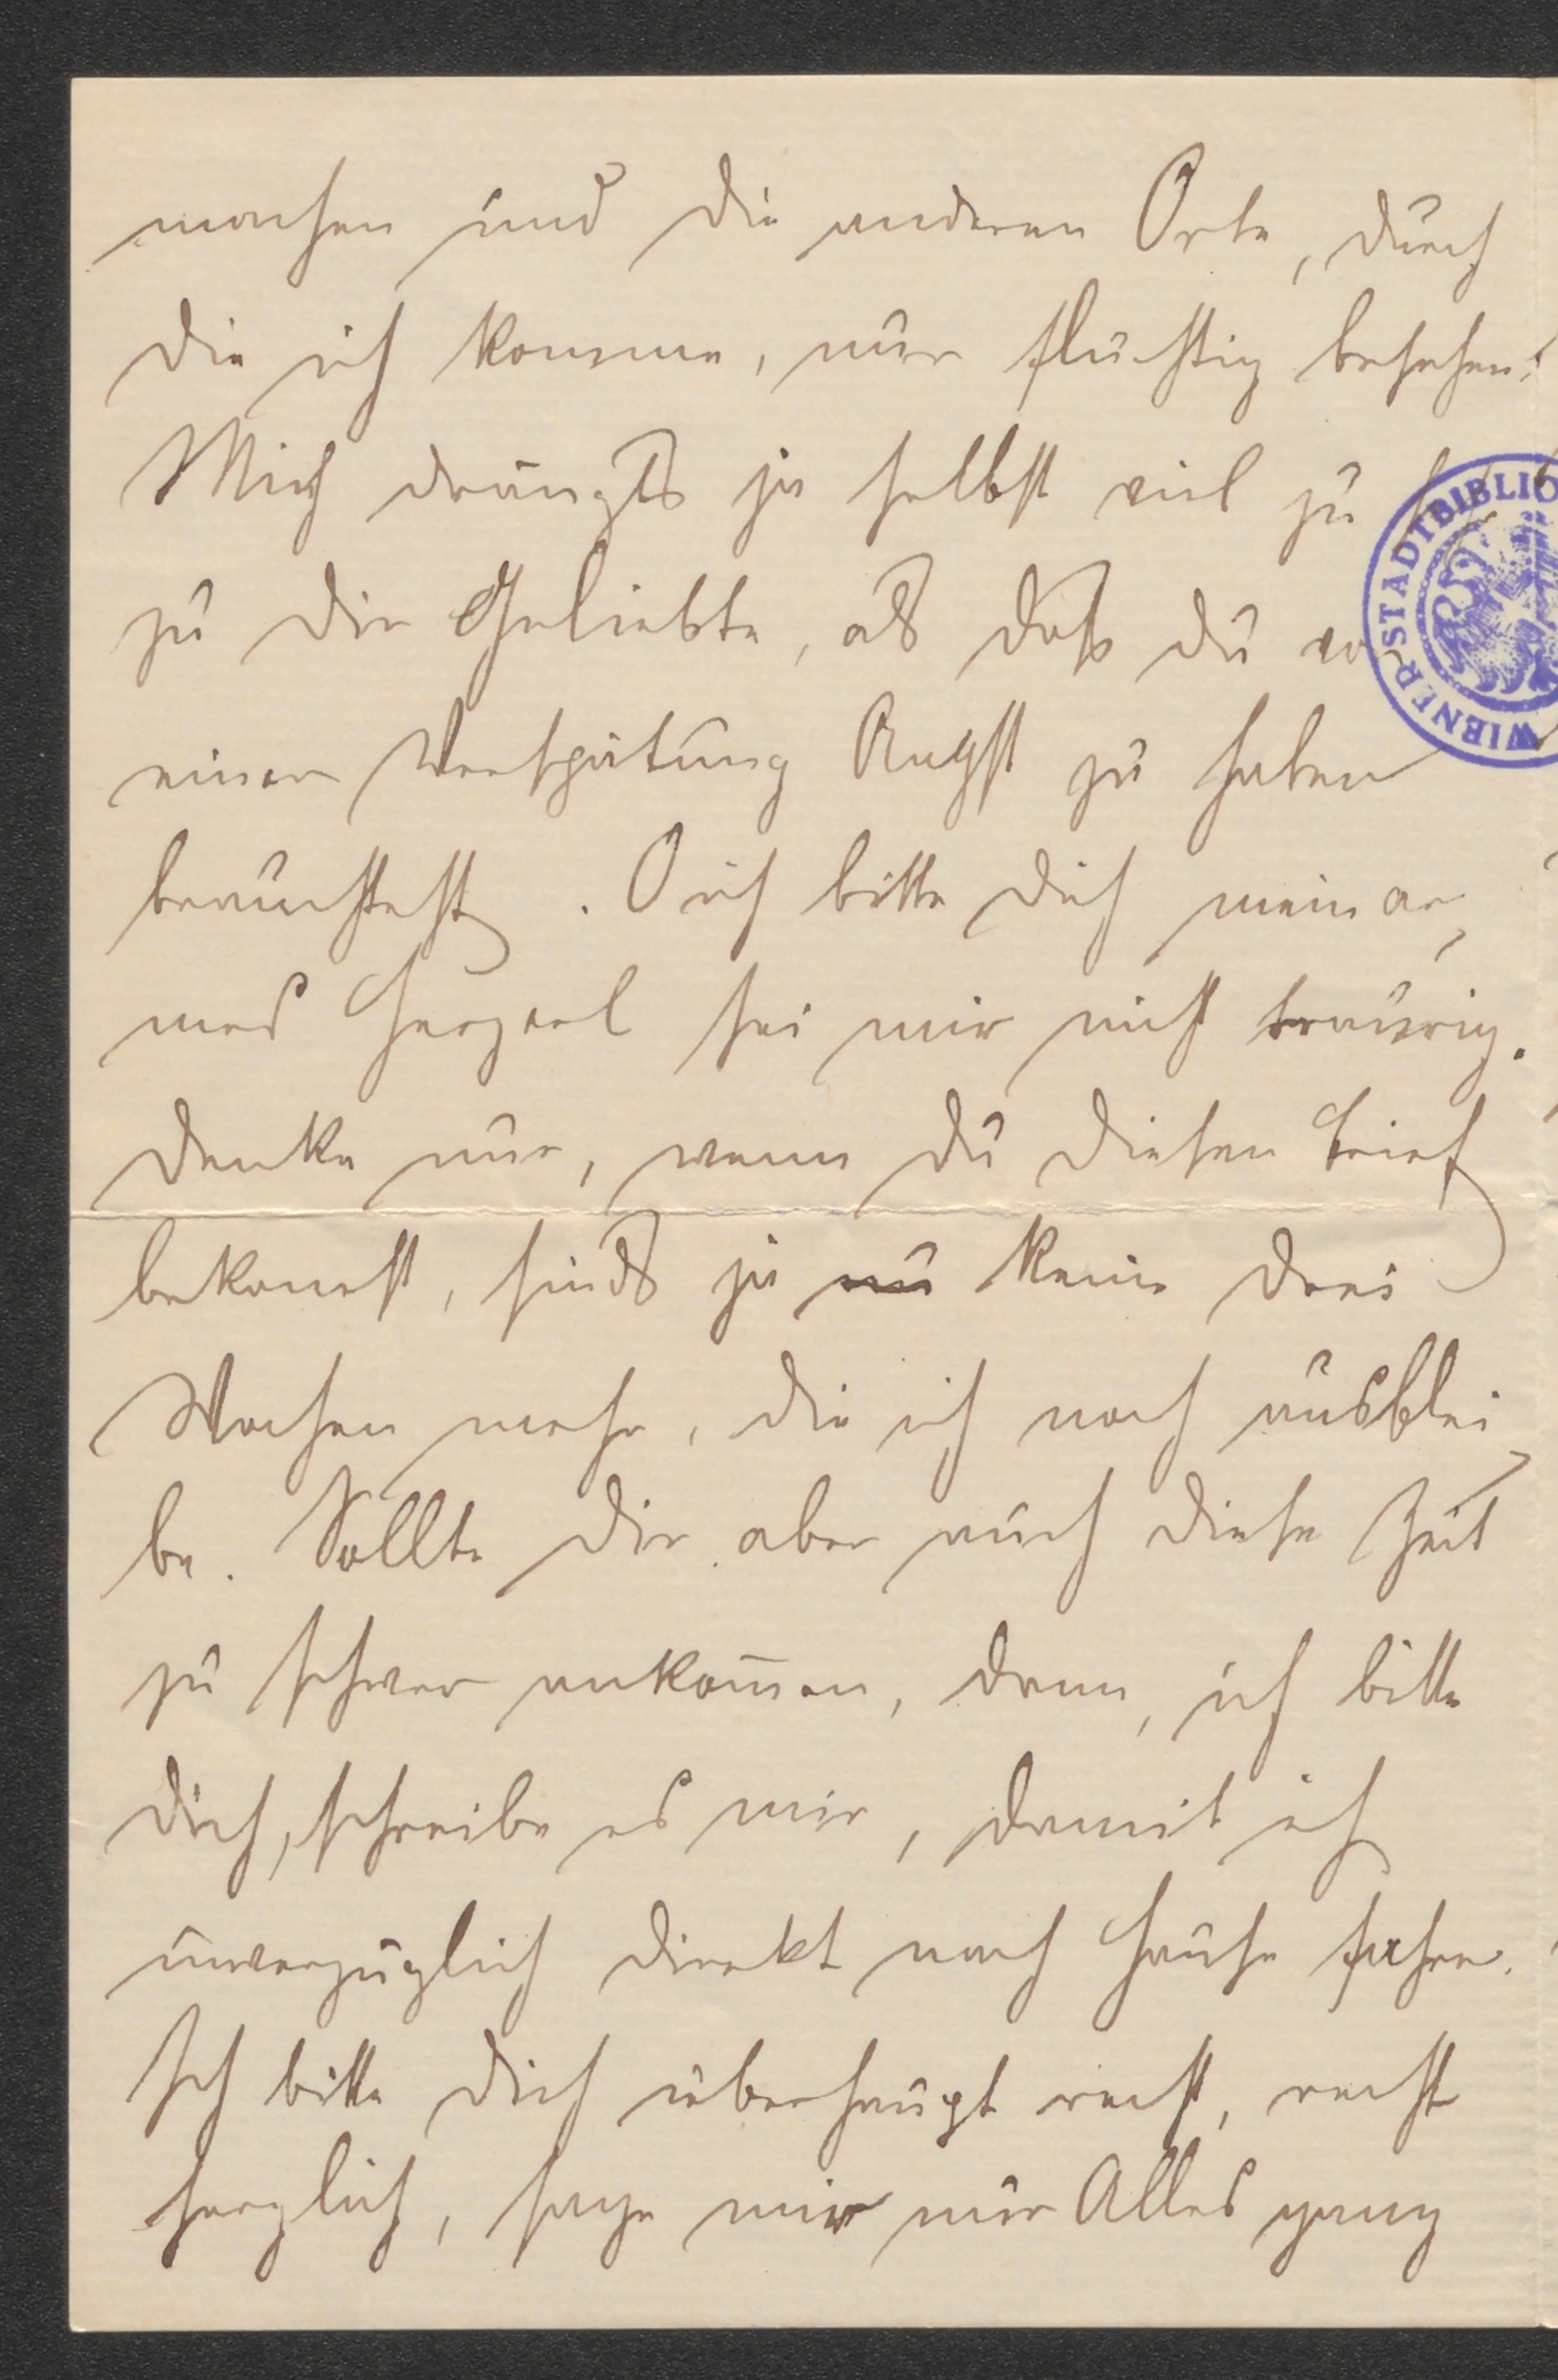 machen und die anderen Orte, durch
die ich komme, nur flüchtig besehen.
Mich drängts ja selbst viel zu
zu dir Geliebte, als daß du vor
einer Verspätung Angst zu haben
brauchtest. O ich bitte dich mein ar-
mes Herzerl sei mir nicht traurig.
Denke nur, wenn du diesen Brief
bekomst, sinds ja nu keine drei
Wochen mehr, die ich noch ausblei-
be. Sollte dir aber auch diese Zeit
zu schwer ankom̄en, dann, ich bitte
dich, schreibe es mir, damit ich
unverzüglich direkt nach Hause fahre.
Ich bitte dich überhaupt recht, recht
herzlich, sage mir nur Alles ganz
WIENER STADTBIBLIO